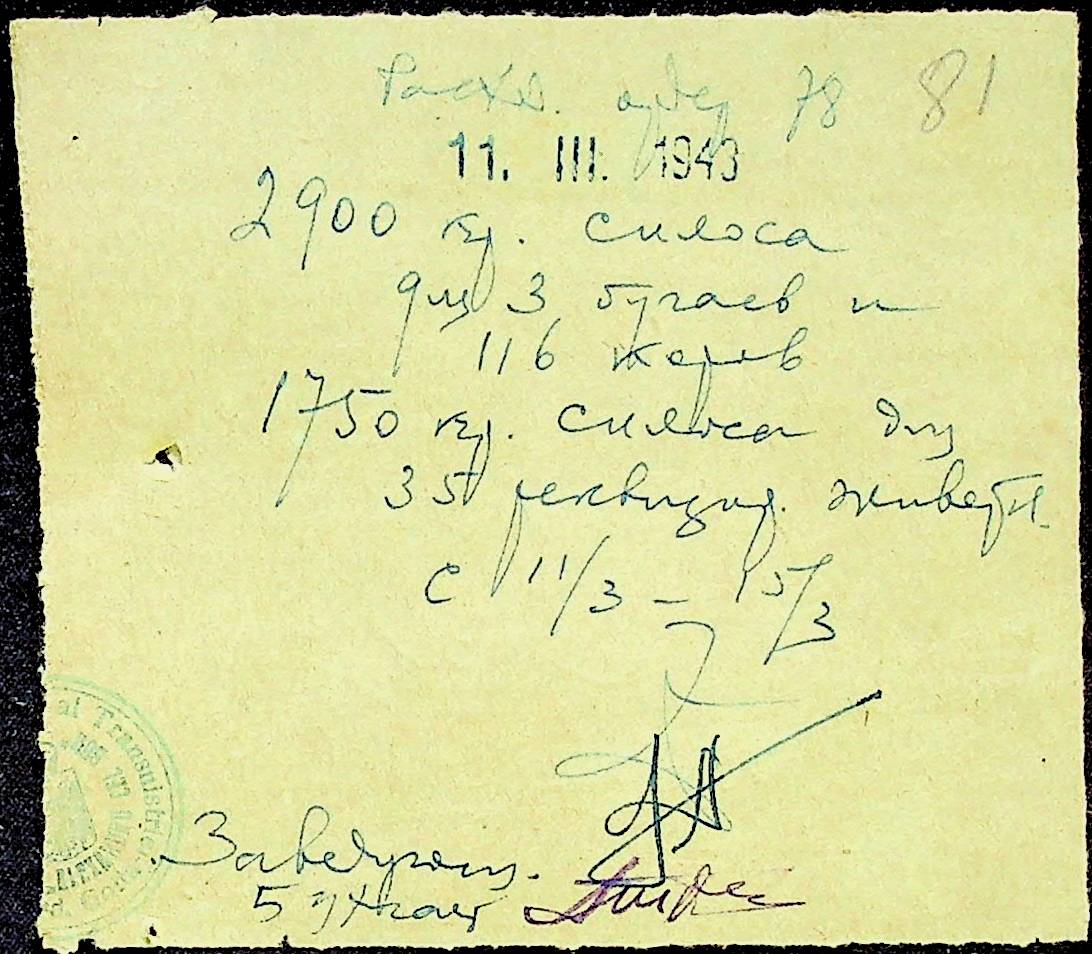 Расход. ордер 78 81
11. III. 1943
2900 кг. силоса
для 3 бугаев и
116 коров
1750 кг. силоса для
35 реквизир. животн.
с 11/3 – 15/3
Заведующ.
5 участком
al Transnistriei